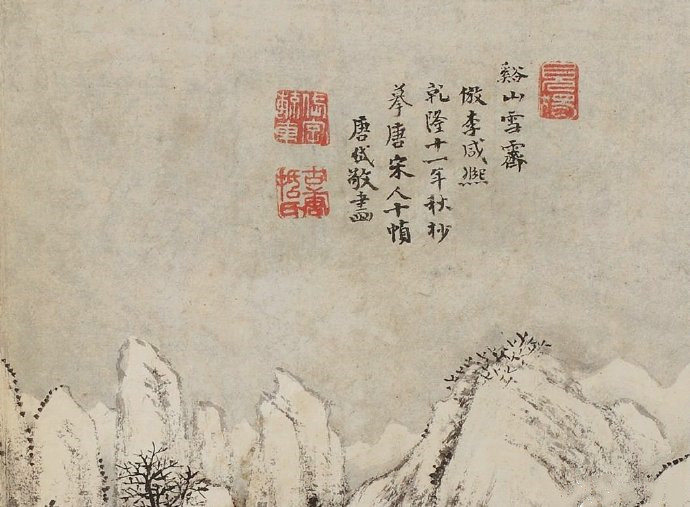 谿山雪霽
倣李咸熙
乾隆十一年秋杪
摹唐宋人十幀
唐岱敬畫